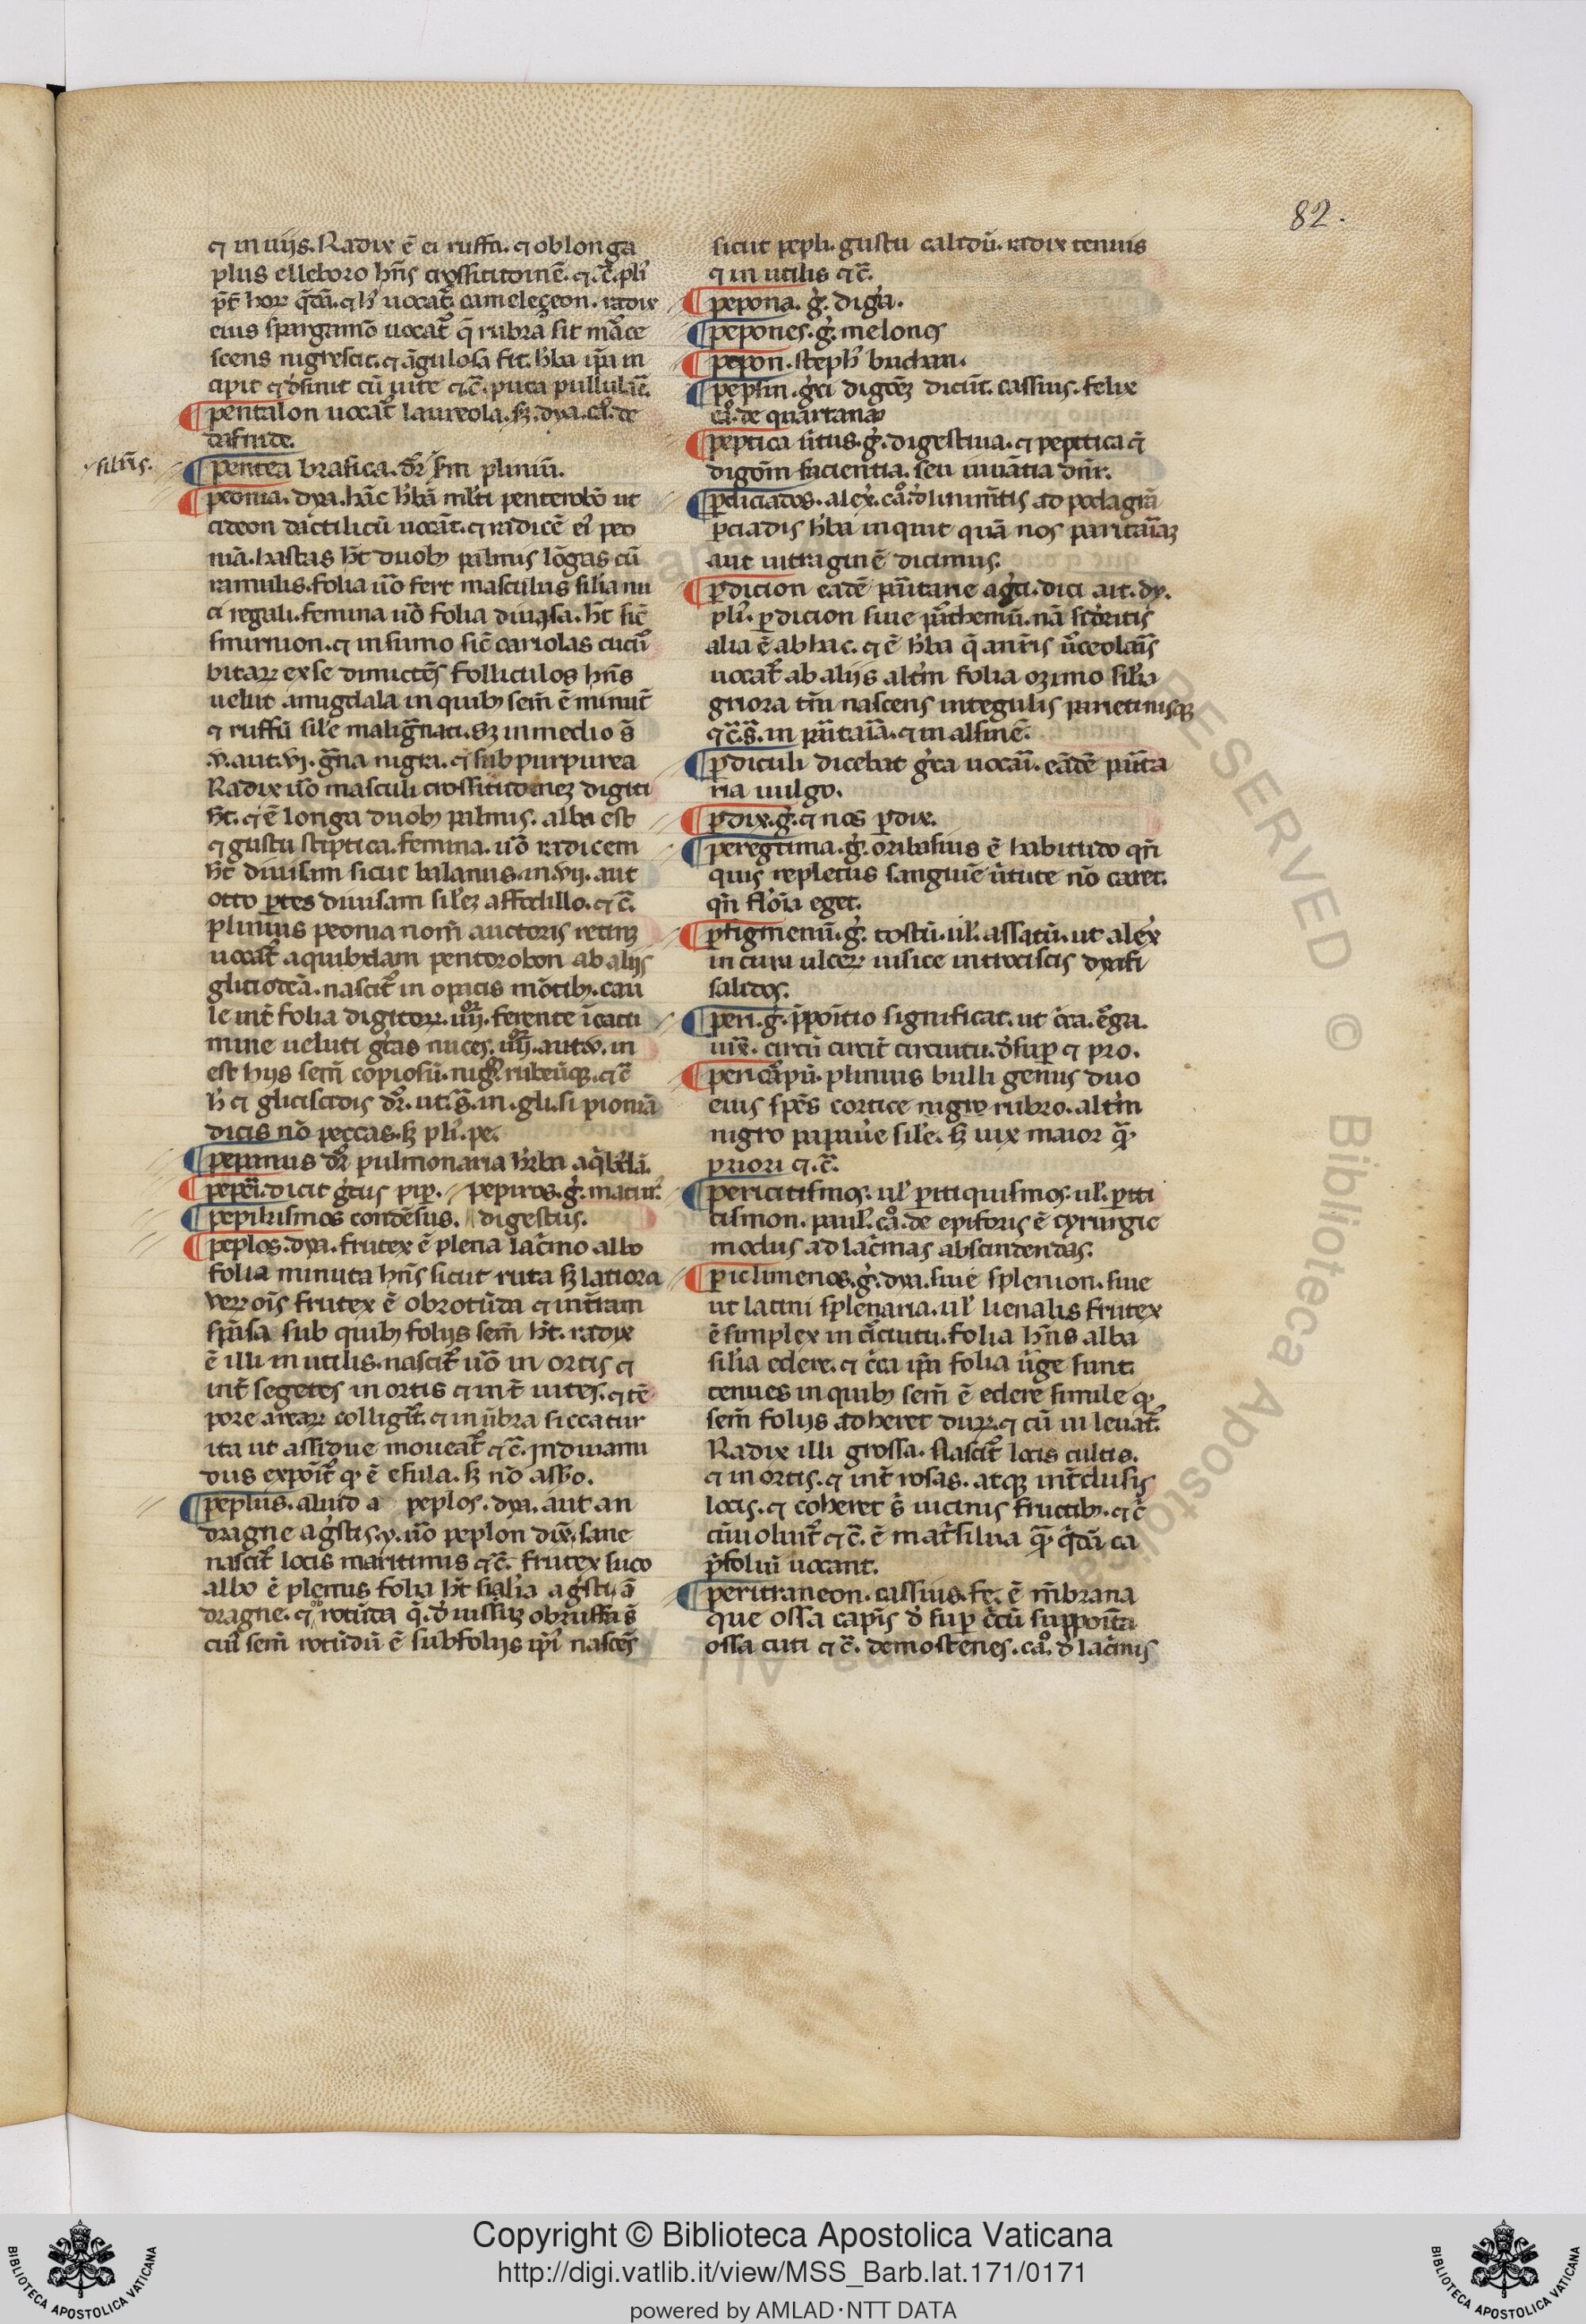 82.
⁊ in uijs. Radix ē ei ruffa. ⁊ oblonga
plus elleboro hn̄s grossitudinē. ⁊. c̄. pli᷒
eius spargano᷒ uocat᷑ q̄ rubra sit
scens nigrescit. ⁊ āgulosa fit. h̓ba ip̄a in
cipit ⁊ desinit cū uite ⁊ c̄.
pentalon uocat᷑ laureola. ẜ. dya. ca̓. de
dafnide.
siluīs.
pentea brasica. dr̄ ẜm pliniū.
peonia. dya. hāc h̓bā ml̓ti penterobō ut
ideon dactilicū uocāt. ⁊ radicē ei᷒ peo
niā. hastas hēt duob᷒ palmis lōgas cū
ramulis. folia u̓o fert masculus silia nu
ci regali. femina u̓o folia diuisa. hēt sic̄
smirnion. ⁊ in sumo sic̄ cariolas cucu᷒
bitaꝝ ex se dimictēs folliculos hn̄s
uelut amigdala in quib᷒ sem̄ ē minut̄
⁊ ruffū sil̓e maligr̄nati. sꝫ in medio s̄
.v. aut .vj. gn̄a nigra. ⁊ subpurpurea
Radix u̓o masculi grossitudinēꝫ digiti
hēt. ⁊ ē longa duob᷒ palmis. alba est
⁊ gustu stiptica. femina. u̓o radicem
hēt diuisam sicut balanus. in .vij. aut
otto ꝑtes diuisam sil̓eꝫ affodillo. ⁊ c̄.
plinius peonia nom̄ auctoris retinꝫ
uocat᷑ a quibusdam pentorobon ab alijs
glicisideā. nascit᷑ in opacis mōtib᷒. cau
le int̄ folia digitoꝝ .iiij. ferente ī cacu
mine ueluti grecas nuces .iiij. aut .v. in
est hijs sem̄ copiosū. nigꝝ. rubeūqꝫ. ⁊ c̄
h̓ ⁊ glicisidis dr̄. ut. s̄. in. gli. si pioniā
dicis nō peccas. ẜ pli̓. pe.
pepanus dr̄ pulmonaria h̓ba a q̓busdā.
pepeī. dicit grecus pip̄. // pepiros. g̓. matur᷑.
pepirismos condēsus. // digestus.
peplos. dya. frutex ē plena lacrimo albo
folia minuta hn̄s sicut ruta ẜ latiora
oīs frutex ē obrotūda ⁊ in terram
sp̄sa sub quib᷒ folijs sem̄ hēt. radix
ē illi inutilis. nascit᷑ u̓o in ortis ⁊
int̄ segetes in ortis ⁊ int̄ uites. ⁊ tē
pore areaꝝ colligit᷑. ⁊ in ūbra siccatur
ita ut assidue moueat᷑ ⁊ c̄. Jn diuami
dus expōit᷑ qꝫ ē esula. ẜ nō assō.
peplus. aliud a peplos. dya. aut an
dragne agrestis. y. u̓o peplon dix̄. sane
nascit᷑ locis maritimis ⁊ c̄. frutex suco
albo ē plenus folia hēt silia agresti ā
dragne. ⁊ rotūda
cui᷒ sem̄ rotūdū ē sub folijs ip̄i᷒ nascēs
sicut pepli. gustu calidū. radix tenuis
⁊ inutilis ⁊ c̄.
pepona. g̓. diga.
pepones. g̓. melones
pepon. steph̓ buchan.
pepsin. greci digōeꝫ dicūt. cassius. felix
ca̓. de quartana
peptica uirtus. g̓. digestiua. ⁊ peptica ⁊
digōm facientia. seu iuuātia dn̄r.
ꝑdiciados. alex̓. ca̓. de linimētis ad podagrā
ꝑciadis h̓ba inquit quā nos paritariāꝫ
aut uitraginē dicimus.
ꝑdicion eadē paritarie a greci. dici ait. dy.
pli᷒. ꝑdicion siue parthemū. nā sideritis
alia ē ab hac. ⁊ ē h̓ba q̄ a nr̄is u̓ceolaris
uocat᷑ ab alijs altin folia ozimo sil̓ia
nigriora tm̄ nascens in tegulis parietinisqꝫ
⁊ c̄. s̄. in paritaria. ⁊ in alsine.
ꝑdiculi dicebat grecia uocari. eādē parita
ria uulgo.
ꝑdix. g̓. ⁊ nos ꝑdix.
peregtima. g̓. oribasius ē habitudo qn̄
quis repletus sanguīe uirtute nō caret.
qn̄ fleubotomia eget.
ꝑfigmenū. g̓. tostū. ul̓. assatū. ut alex̓
in cura ulceꝝ uisice in trociscis dyafi
salidos.
peri. g̓. ꝑpositio significat. ut circa. erga.
iux̄. circū circit̄ circuitu. de sup̄ ⁊ pro.
pericarpū. plinius bulbi genus duo
eius spēs cortice nigro rubro. altin
nigro papaue̓ sil̓e. ẜ uix maior qꝫ
priori ⁊. c̄.
pericitismos. ul̓ ꝑitiquismos. ul̓. ꝑiti
tismon. paul̓. ca̓. de epiforis ē cyrurgie
modus ad lacrimas abscindendas.
ꝑiclimenos. g̓. dya. siue splenion. siue
ut latini splenaria. ul̓ lienalis frutex
ē simplex in circuitu. folia hn̄s alba
sil̓ia edere. ⁊ circa ip̄a folia uirge sunt
tenues in quib᷒ sem̄ ē edere simile qꝫ
sem̄ folijs adheret duꝝ ⁊ cū ui leuat᷑.
Radix illi grossa. Nascit᷑ locis cultis.
⁊ in ortis. ⁊ int̄ rosas. atqꝫ int̄clusis
locis. ⁊ coheret s̄ uicinis fructib᷒. ⁊ c̄
cūuoluit᷑ ⁊ c̄. ē mat̄silua qꝫ q̓dā ca
p̓foliū uocant.
peritraneon. cassius. fe. ē mēbrana
que ossa capitis de sup̄ circū supposita
ossa cuti ⁊ c̄. demostenes. ca̓. de lacrimis
RESERVED © Biblioteca Apostolica
Copyright © Biblioteca Apostolica Vaticana
http://digi.vatlib.it/view/MSS_Barb.lat.171/0171
powered by AMLAD·NTT DATA
BIBLIOTECA APOSTOLICA VATICANA
BIBLIOTECA APOSTOLICA VATICANA